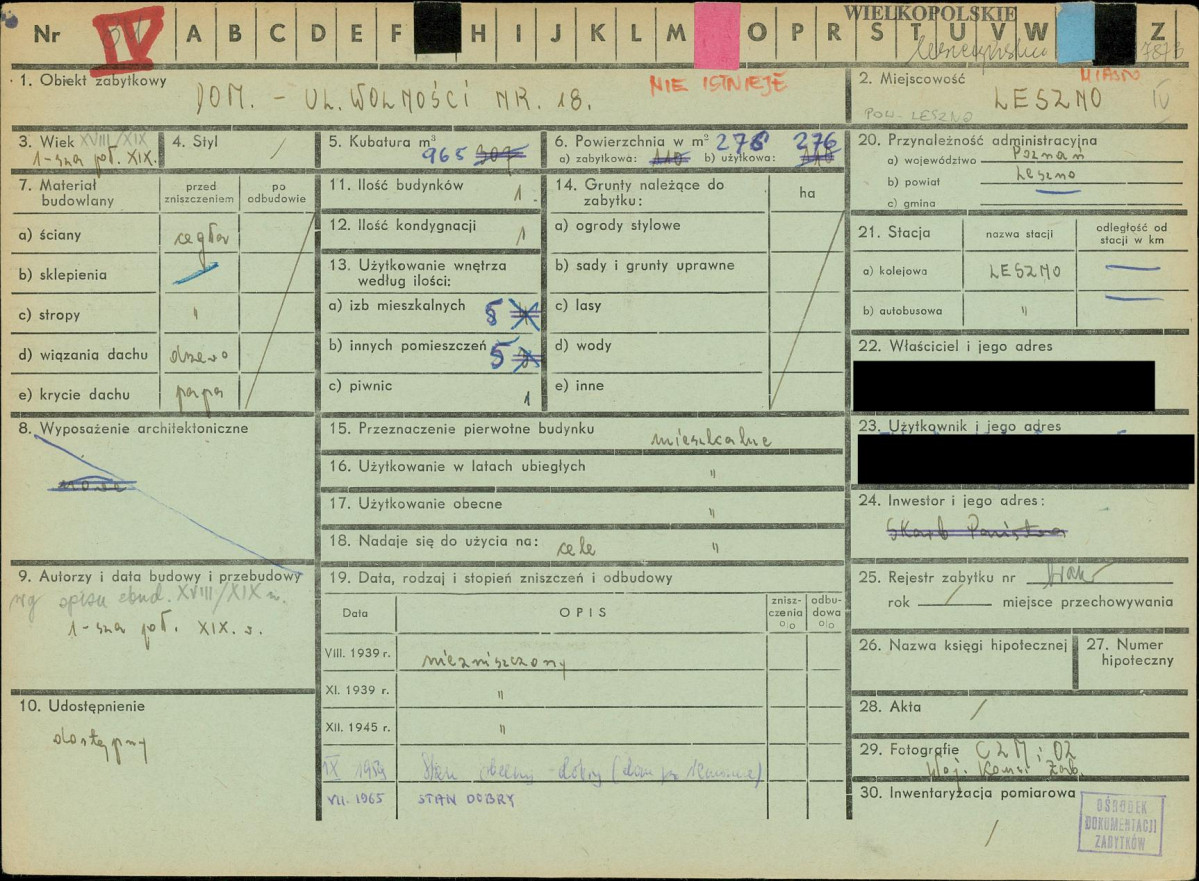 Nr IV A B C D E F H I J K L M O P R S T U V W Z
WIELKOPOLSKIE
7873
1. Obiekt zabytkowy
DOM. - UL. WOLNOŚCI NR. 18.
NIE ISTNIEJE
2. Miejscowość
MIASTO
LESZNO
IV
POW. LESZNO
3. Wiek XVIII/XIX
1-sza poł. XIX.
4. Styl /
5. Kubatura m³
965 307
6. Powierzchnia w m² 276 276
a) zabytkowa: 110 b) użytkowa: 110
20. Przynależność administracyjna
a) województwo Poznań
b) powiat Leszno
c) gmina
7. Materiał budowlany
przed zniszczeniem
po odbudowie
a) ściany cegła
b) sklepienia
c) stropy "
d) wiązania dachu drzewo
e) krycie dachu papa
11. Ilość budynków 1.
12. Ilość kondygnacji 1
13. Użytkowanie wnętrza według ilości:
a) izb mieszkalnych 5
b) innych pomieszczeń 5
c) piwnic 1
14. Grunty należące do zabytku:
ha
a) ogrody stylowe
b) sady i grunty uprawne
c) lasy
d) wody
e) inne
21. Stacja
nazwa stacji
odległość od stacji w km
a) kolejowa LESZNO
b) autobusowa "
22. Właściciel i jego adres
23. Użytkownik i jego adres
24. Inwestor i jego adres:
Skarb Państwa
8. Wyposażenie architektoniczne
nowe
15. Przeznaczenie pierwotne budynku mieszkalne
16. Użytkowanie w latach ubiegłych "
17. Użytkowanie obecne "
18. Nadaje się do użycia na: cele "
9. Autorzy i data budowy i przebudowy
wg spisu XVIII/XIX w.
1-sza poł. XIX. w.
10. Udostępnienie
dostępny
19. Data, rodzaj i stopień zniszczeń i odbudowy
Data
OPIS
znisz-czenia %
odbu-dowa %
VIII. 1939 r. niezniszczony
XI. 1939 r. "
XII. 1945 r. "
IX 1959 Stan obecny - dobry (dom po remoncie)
VII. 1965 STAN DOBRY
25. Rejestr zabytku nr brak
rok / miejsce przechowywania
26. Nazwa księgi hipotecznej
27. Numer hipoteczny
28. Akta /
29. Fotografie CZM i OZ
Woj. Kons. Zab.
30. Inwentaryzacja pomiarowa
/
OŚRODEK
DOKUMENTACJI
ZABYTKÓW